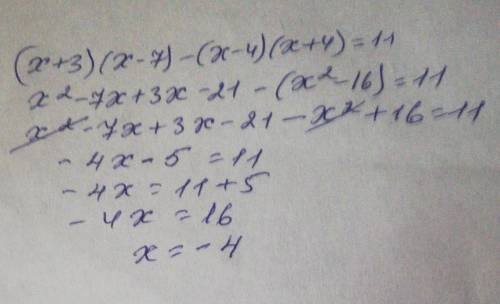 (x+3)(x-7)-(x-4)(x+4)=11
x²-7x+3x-21-(x²-16)=11
x²-7x+3x-21-x²+16=11
-4x-5=11
-4x=11+5
-4x=16
x=-4